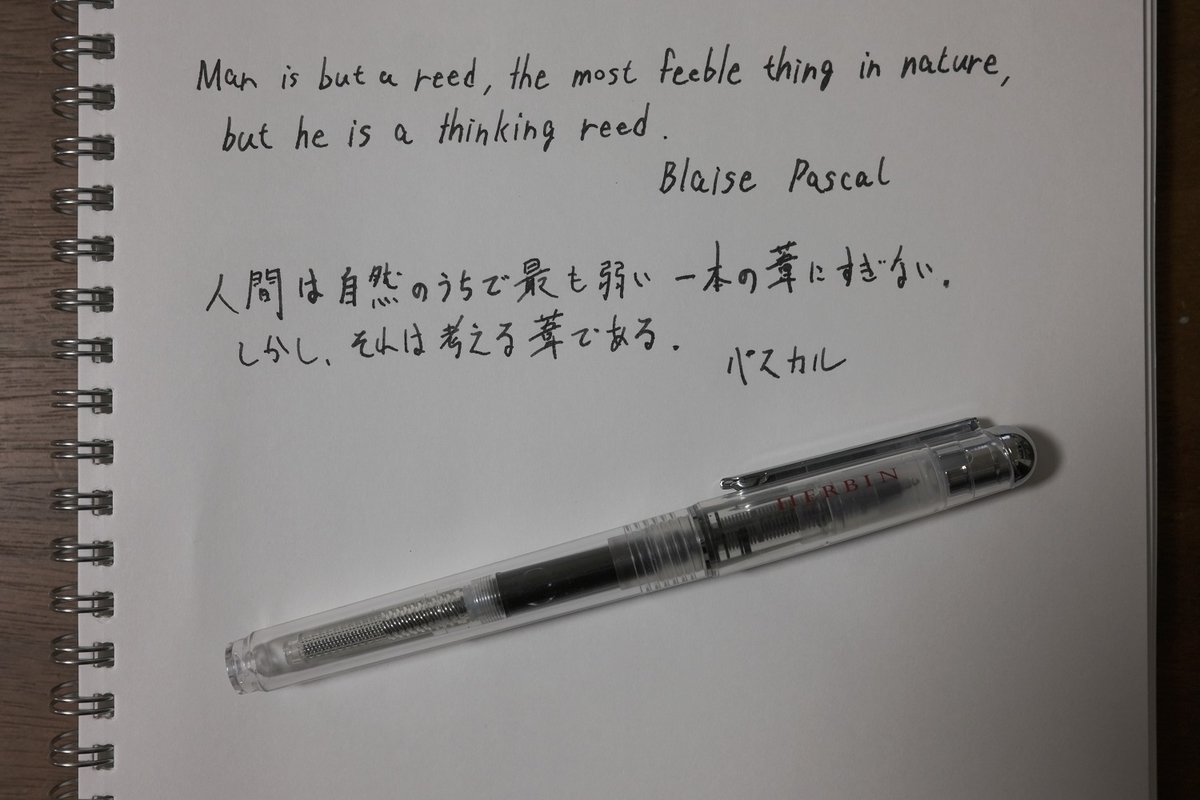 Man is but a reed, the most feeble thing in nature,
but he is a thinking reed.
Blaise Pascal
人間は自然のうちで最も弱い一本の葦にすぎない.
しかし、それは考える葦である.
パスカル
HERBIN